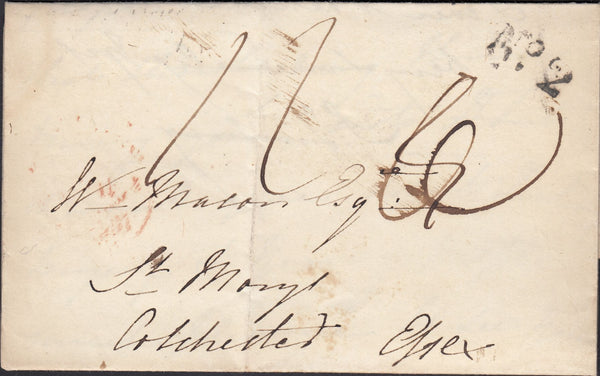 Wm Mason Esqr
St Marys
Colchester Essex